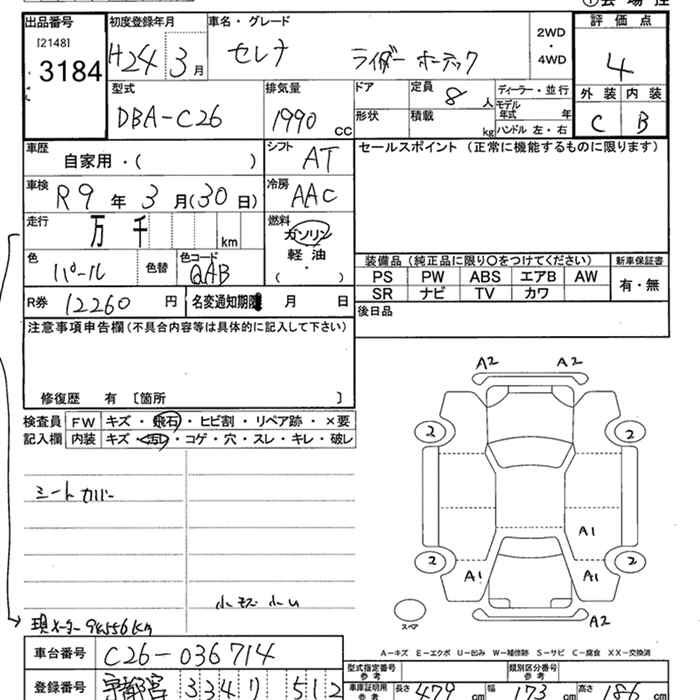 出品番号 初度登録年月 車名・グレード 評価点
[2148]
3184
H24 3月 セレナ ライダー ホーテック
2WD
・
4WD
4
型式 排気量 ドア 定員 ディーラー・並行 外装 内装
DBA-C26 1990 cc 8人 モデル年式 年
形状 積載 kg ハンドル 左・右
C B
車歴 シフト セールスポイント (正常に機能するものに限ります)
自家用・( ) AT
車検 冷房
R9年 3月(30日) AAC
走行 燃料
万 千 km ガソリン
軽油
( ・ )
色 色替 色コード
パール QAB
装備品 (純正品に限り○をつけてください) 新車保証書
PS PW ABS エアB AW 有・無
SR ナビ TV カワ
R券 12260 円 名変通知期限 月 日
後日品
注意事項申告欄(不具合内容等は具体的に記入して下さい)
修復歴 有 〔箇所 〕
検査員 FW キズ・飛石・ヒビ割・リペア跡・×要
記入欄 内装 キズ・汚レ・コゲ・穴・スレ・キレ・破レ
シートカバー
A2 A2
2 2
A1
2 2
A1 A1
A2
スペア
現メーター 94556km
A-キズ E-エクボ U-凹み W-補修跡 S-サビ C-腐食 XX-交換済
車台番号 C26-036714
型式指定番号 参考 類別区分番号 参考
登録番号 宇都宮 334 512
車庫証明用 参考 長さ 479 cm 幅 173 cm 高さ 186 cm